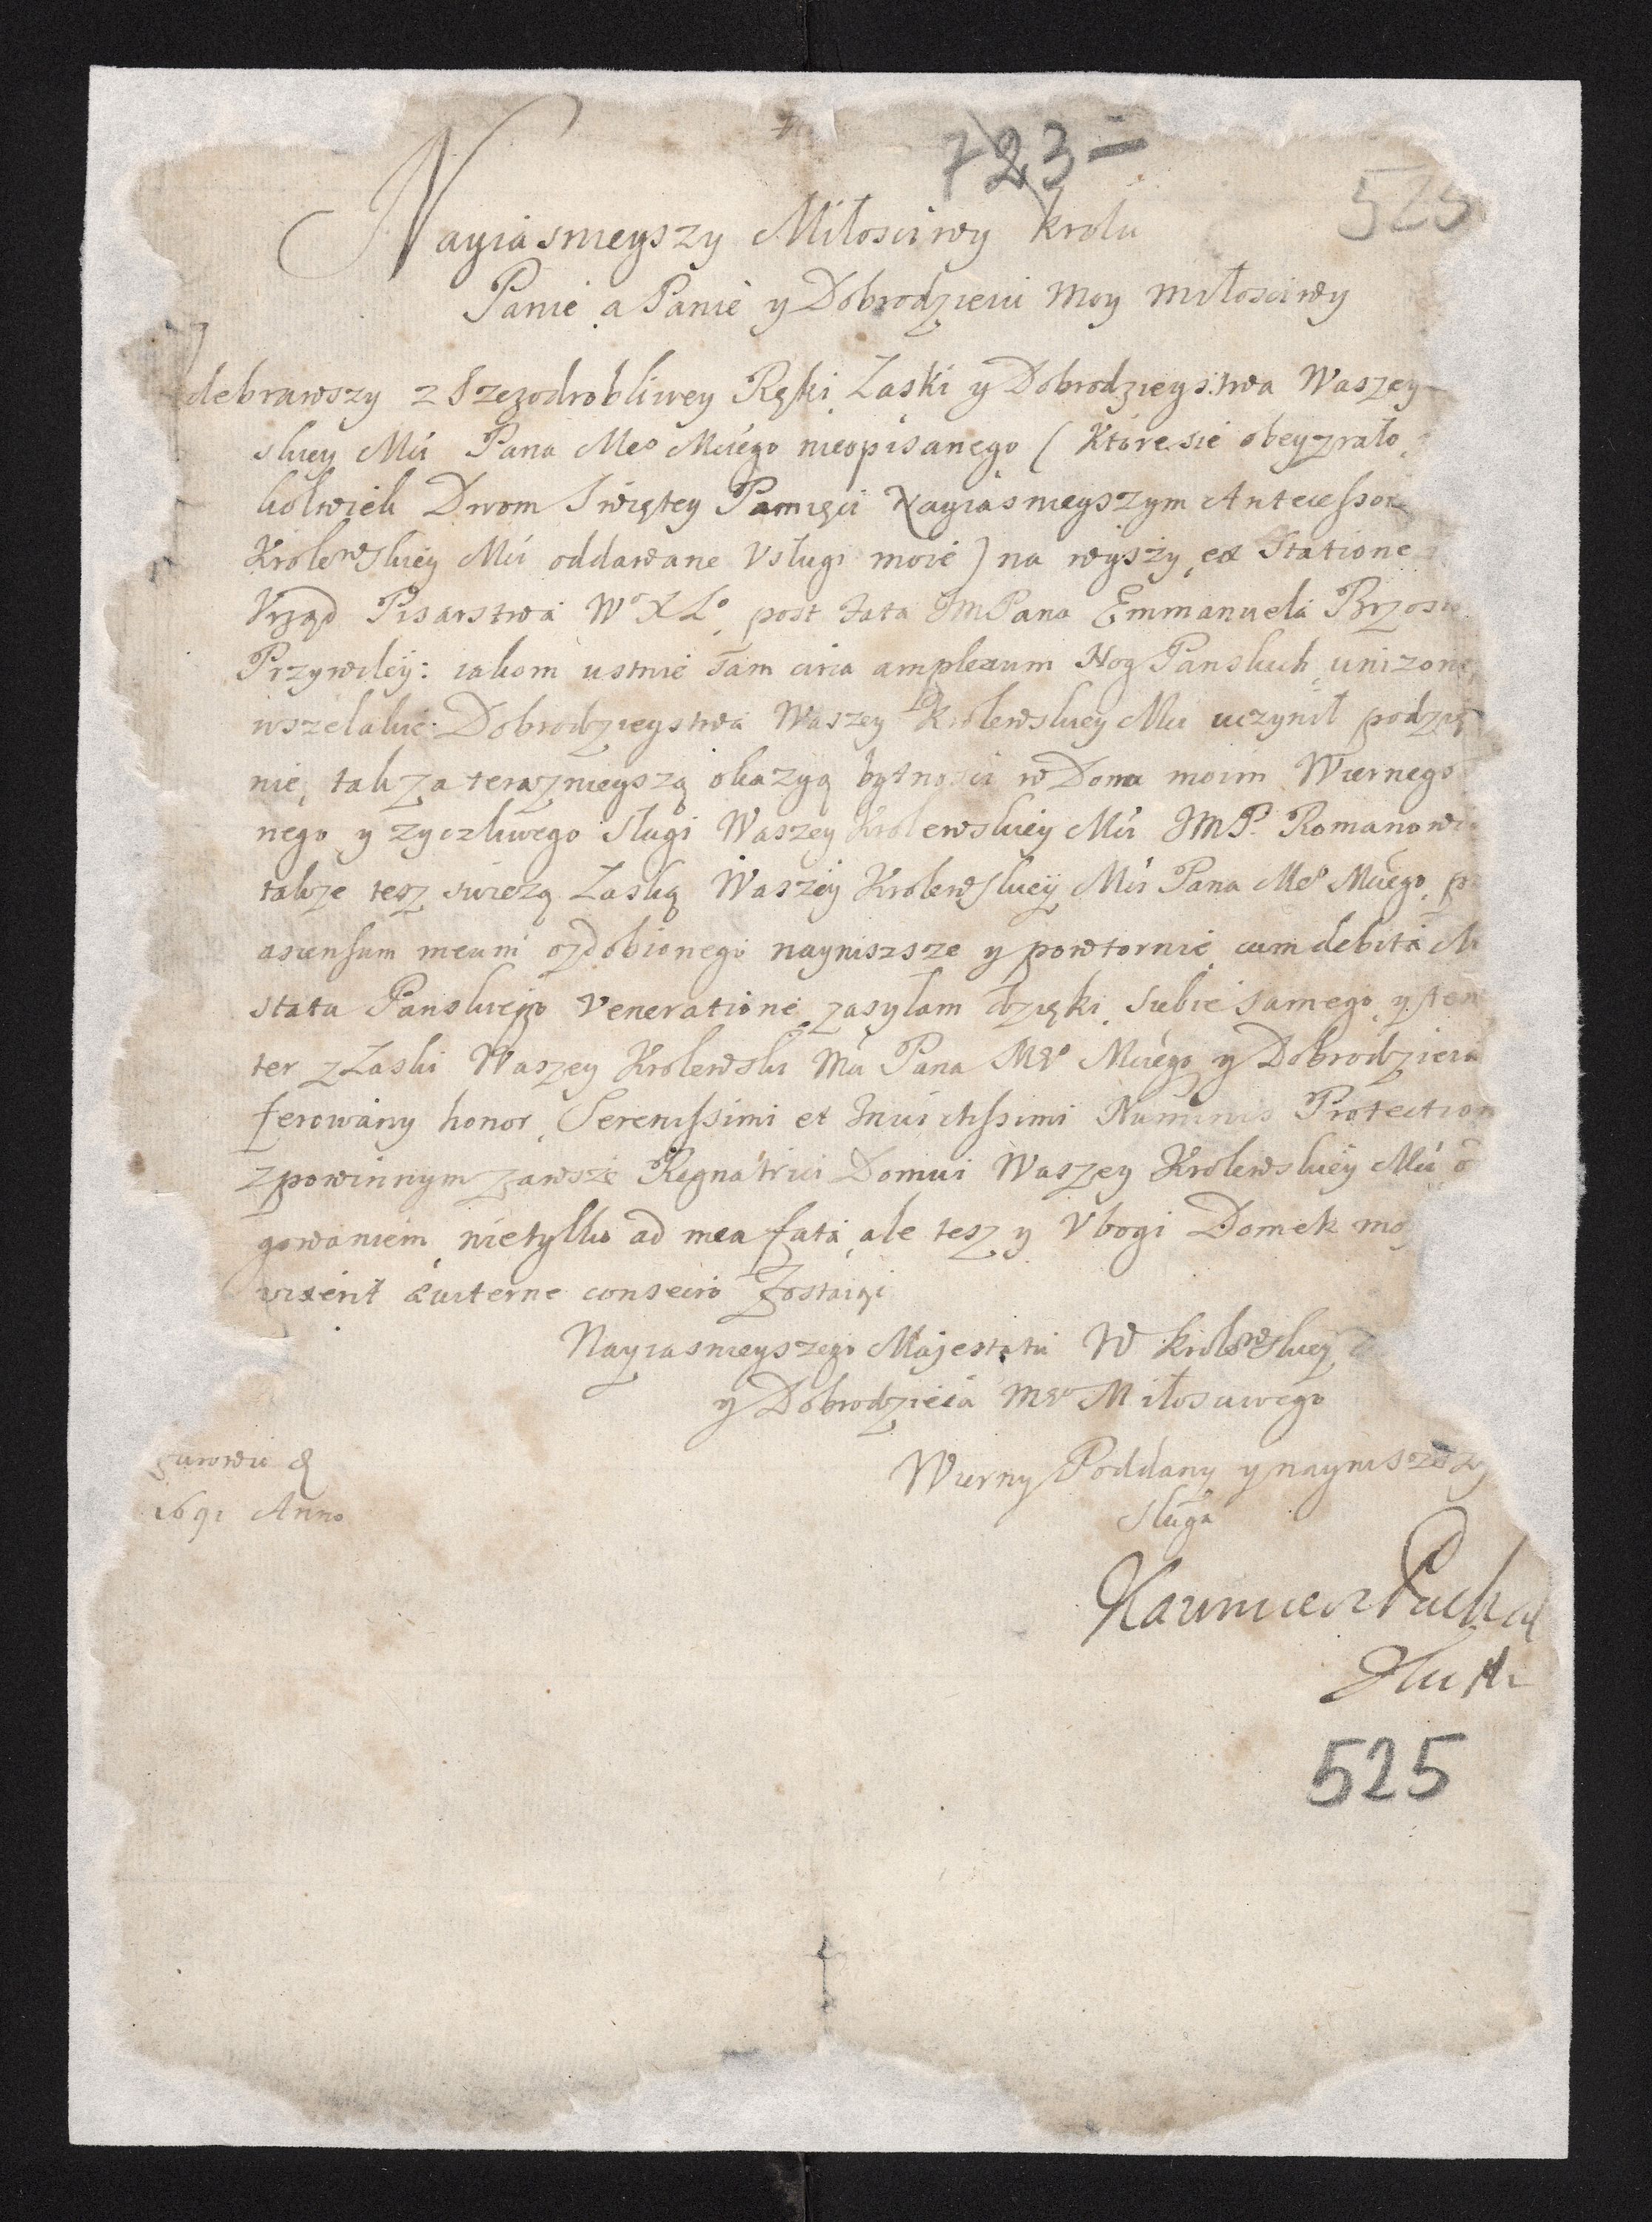 723-
525
Nayiasnieyszy Miłosciwy Krolu
Panie a Panie y Dobrodzieiu moy miłosciwy
debrawszy z Szczodrobliwey Ręki Łaski y Dobrodzieystwa Waszey
skiey Mci Pana Meo Mciego nieopisanego ( Ktore sie obeyzrało
kolwiek Dwom Swiętey Pamięci Nayiasnieyszym Antecessor
Krolewskiey Mci oddawane Vsługi moie ) na wyszy ex Statione
Vrząd Pisarstwa Wo XLo post fata JMPana Emmanuela Brzos
Przywiley: iakom ustnie tam circa amplexum Nog Panskich unizone
wszelakie Dobrodzieystwa Waszey Krolewskiey Mci uczynił podzię
nie, tak za teraznieyszą okazyą bytnosci w Domu moim Wiernego
nego y zyczliwego Sługi Waszey Krolewskiey Mci JMP. Romanow
takze tesz swiezą Łaską Waszey Krolewskiey Mci Pana Meo Mciego p
ascensum meum ozdobionego nayniszsze y powtornie cum debita M
statu Panskiego Veneratione zasyłam dzięki, siebie samego, y
ter z Łaski Waszey Krolewski Mci Pana Meo Mciego y Dobrodzieia
ferowany honor, Serenissimi et Invictissimi Numinis Protection
z powinnym zawsze Regnatrici Domui Waszey Krolewskiey Mci
gowaniem nietylko ad mea fata, ale tesz y Vbogi Domek mo
vixerit æviterne consecro Zostaiąc
Nayiasnieyszego Majestatu W Krolewskiey
y Dobrodzieia Meo Miłosciwego
Wierny Poddany y naynisszy
Sługa
1691 Anno
Kazimierz
525